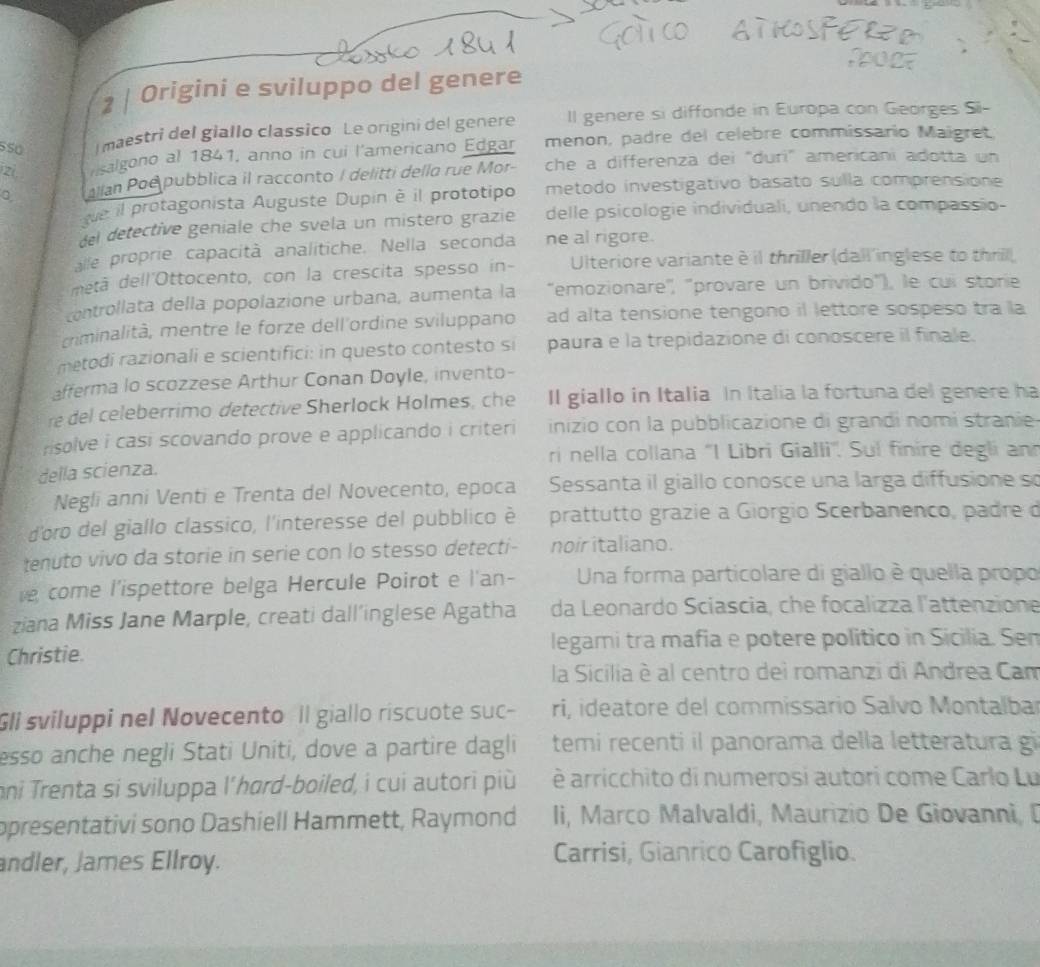 classico 1841
GOTICO ATMOSFERE
2 | Origini e sviluppo del genere
sso
izi
o
I maestri del giallo classico Le origini del genere
risalgono al 1841, anno in cui l'americano Edgar
Allan Poe pubblica il racconto I delitti della rue Mor-
gue: il protagonista Auguste Dupin è il prototipo
del detective geniale che svela un mistero grazie
alle proprie capacità analitiche. Nella seconda
metà dell'Ottocento, con la crescita spesso in-
controllata della popolazione urbana, aumenta la
criminalità, mentre le forze dell'ordine sviluppano
metodi razionali e scientifici: in questo contesto si
afferma lo scozzese Arthur Conan Doyle, invento-
re del celeberrimo detective Sherlock Holmes, che
risolve i casi scovando prove e applicando i criteri
della scienza.
Negli anni Venti e Trenta del Novecento, epoca
d'oro del giallo classico, l'interesse del pubblico è
tenuto vivo da storie in serie con lo stesso detecti-
ve, come l'ispettore belga Hercule Poirot e l'an-
ziana Miss Jane Marple, creati dall'inglese Agatha
Christie.
Gli sviluppi nel Novecento Il giallo riscuote suc-
esso anche negli Stati Uniti, dove a partire dagli
nni Trenta si sviluppa l'hard-boiled, i cui autori più
ppresentativi sono Dashiell Hammett, Raymond
andler, James Ellroy.
Il genere si diffonde in Europa con Georges Si-
menon, padre del celebre commissario Maigret,
che a differenza dei "duri" americani adotta un
metodo investigativo basato sulla comprensione
delle psicologie individuali, unendo la compassio-
ne al rigore.
Ulteriore variante è il thriller (dall'inglese to thrill,
"emozionare", "provare un brivido"), le cui storie
ad alta tensione tengono il lettore sospeso tra la
paura e la trepidazione di conoscere il finale.
Il giallo in Italia In Italia la fortuna del genere ha
inizio con la pubblicazione di grandi nomi stranie-
ri nella collana "I Libri Gialli". Sul finire degli ann
Sessanta il giallo conosce una larga diffusione so
prattutto grazie a Giorgio Scerbanenco, padre d
noir italiano.
Una forma particolare di giallo è quella propo
da Leonardo Sciascia, che focalizza l'attenzione
legami tra mafia e potere politico in Sicilia. Sem
la Sicilia è al centro dei romanzi di Andrea Cam
ri, ideatore del commissario Salvo Montalban
temi recenti il panorama della letteratura gi
è arricchito di numerosi autori come Carlo Lu
li, Marco Malvaldi, Maurizio De Giovanni, D
Carrisi, Gianrico Carofiglio.